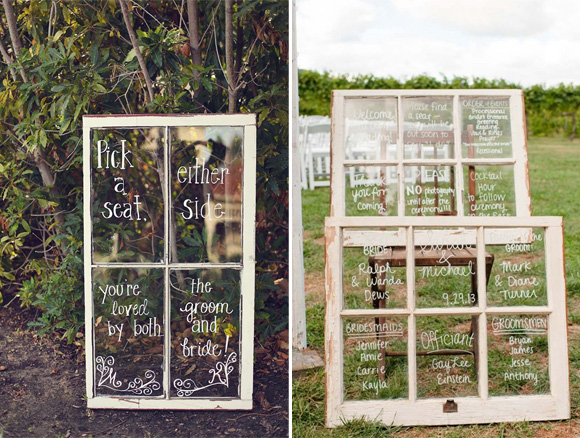 Pick
a
seat,
either
side
you're
loved
by both
the
groom
and
bride!
M
K
Welcome
Please find
a seat
out soon to
ORDER OF EVENTS
Processional
Greeting
Reading
Vows
Prayer
Thank
you for
Coming
PLEASE
NO photography
until after the
ceremony!!!
Cocktail
Hour
to follow
ceremony
BRIDE
Ralph &
Wanda
Dews
&
Michael
9.29.13
GROOM
Mark &
Diane
Turner
BRIDESMAIDS
Jennifer
Amie
Carrie
Kayla
Officiant
GayLee
Einstein
GROOMSMEN
Bryan
James
Jesse
Anthony